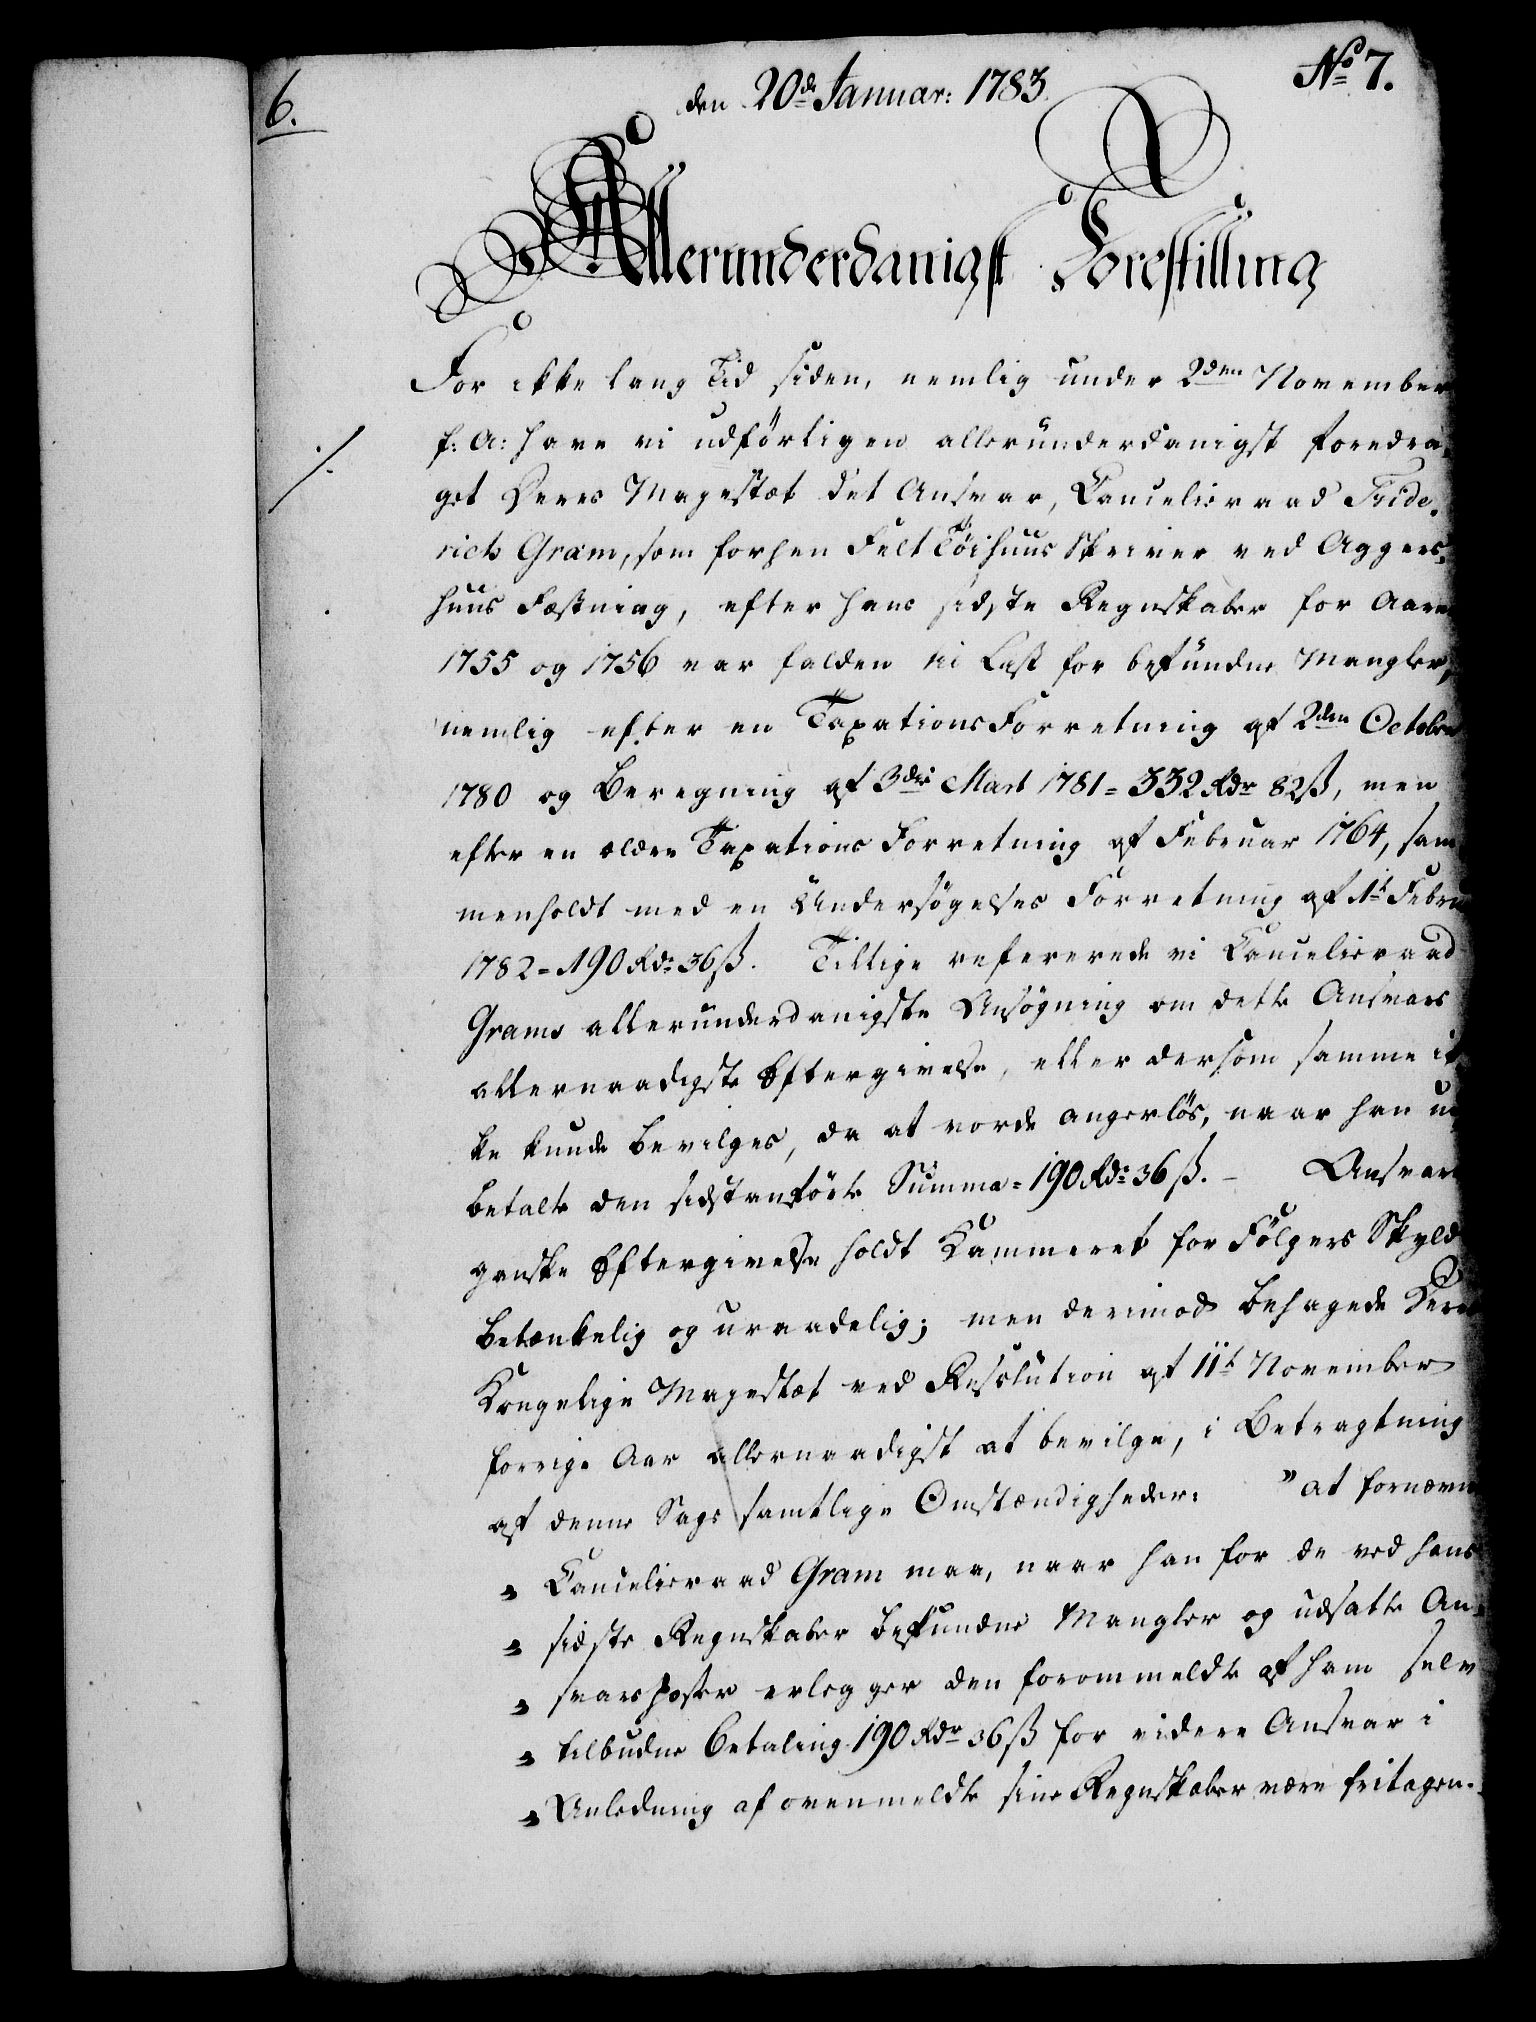 6.
den 20de Januar: 1783.
No 7.
Allerunderdanigst Forestilling
For ikke lang Tid siden, nemlig under 2den November
f: A: have vi udförligen allerunderdanigst foredra-
get Deres Majestæt det Ansvar, Cancelieraad Fride-
rich Gram, som forhen Felt Töihuus Skriver ved Aggers-
huus Fæstning, efter hans sidste Regnskaber for Aaren
1755 og 1756 var falden til Last for befundne Mangler,
nemlig efter en Taxations Forretning af 2den October
1780 og Beregning af 3die Mart 1781 = 332 Rdr 82 ß, men
efter en ældre Taxations Forretning af Februar 1764, sam-
menholdt med en Undersögelses Forretning af 1t Febru
1782 = 190 Rdr 36 ß. Tillige refererede vi Cancelieraad
Grams allerunderdanigste Ansögning om dette Ansvars
allernaadigste Eftergivelse, eller dersom samme ik-
ke kunde bevilges, da at vorde angerlös, naar han ud
betalte den sidstanförte Summa = 190 Rdr 36 ß. - Ansvarets
ganske Eftergivelse holdt Kammeret for Fölgers Skyld
betænkelig og uraadelig; men derimod behagede Deres
Kongelige Majestæt ved Resolution af 11t November
forrige Aar allernaadigst at bevilge, i Betragtning
af denne Sags samtlige Omstændigheder: "at fornævnte
" Cancelieraad Gram maa, naar han for de ved hans
" sidste Regnskaber befundne Mangler og udsatte An-
" svarsposter erlegger den forommeldte af ham selv
" tilbudne Betaling 190 Rdr 36 ß for videre Ansvar i
" Anledning af ovenmeldte sine Regnskaber være fritagen.